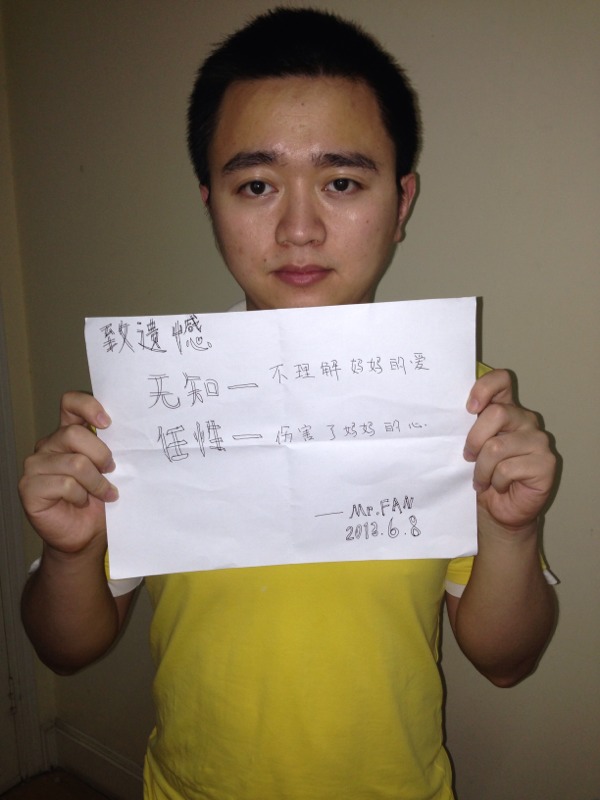 致遗憾
无知—不理解妈妈的爱
任性—伤害了妈妈的心.
—Mr.FAN
2013.6.8